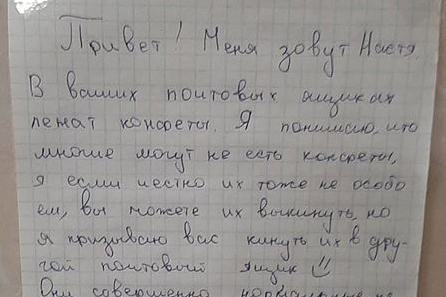 Привет! Меня зовут Настя.
В ваших почтовых ящиках
лежат конфеты. Я понимаю, что
многие могут не есть конфеты,
я если честно их тоже не особо
ем, вы можете их выкинуть, но
я призываю вас кинуть их в дру-
гой почтовый ящик ☺
Они совершенно нормальные